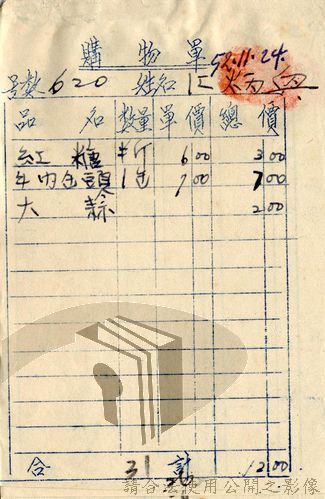 購物單 52.11.24.
号数 620 姓名 江炳興
品名 数量 單價 總價
紅糖 半斤 6.00 3.00
牛肉缶頭 1缶 7.00 7.00
大蒜 2.00
合計 12.00
31
請合法使用公開之影像